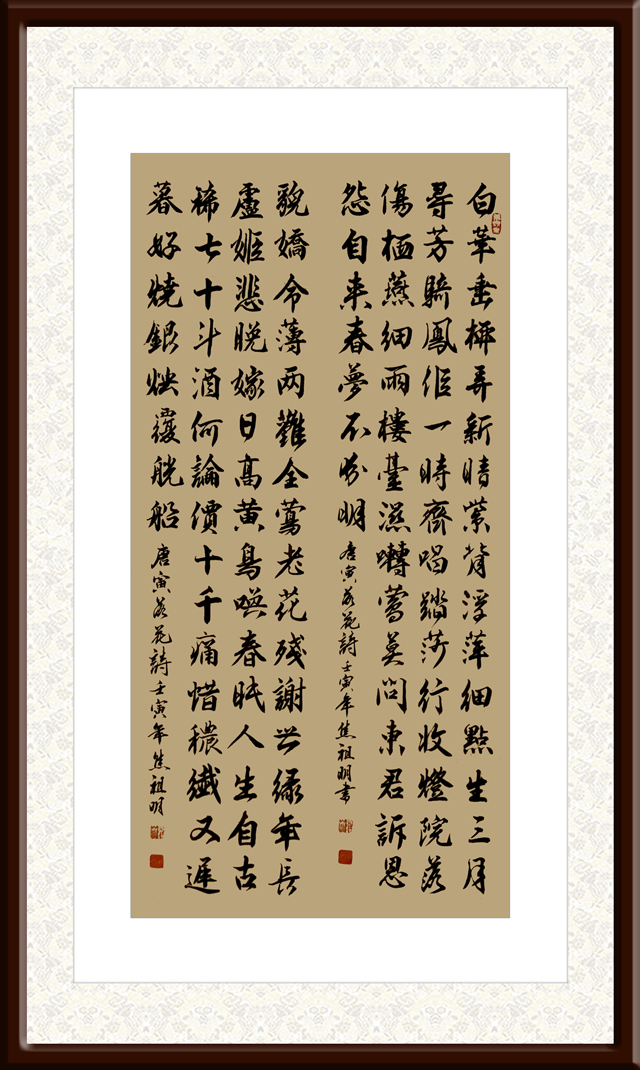 白華垂弄新晴紫背浮萍細點生三月
尋芳騎鳳一時齊唱踏莎行收燈院落
傷栖燕細雨樓臺濕囀鶯莫問東君訴恩
怨自来春夢不分明 唐寅落花詩壬寅年焦祖明書
貌嬌命薄两難全鶯老花殘謝世緣年長
盧姬悲晚嫁日高黄鳥喚春眠人生自古
稀七十斗酒何論價十千痛惜穠纖又遲
暮好燒銀燭覆觥船 唐寅落花詩壬寅年焦祖明